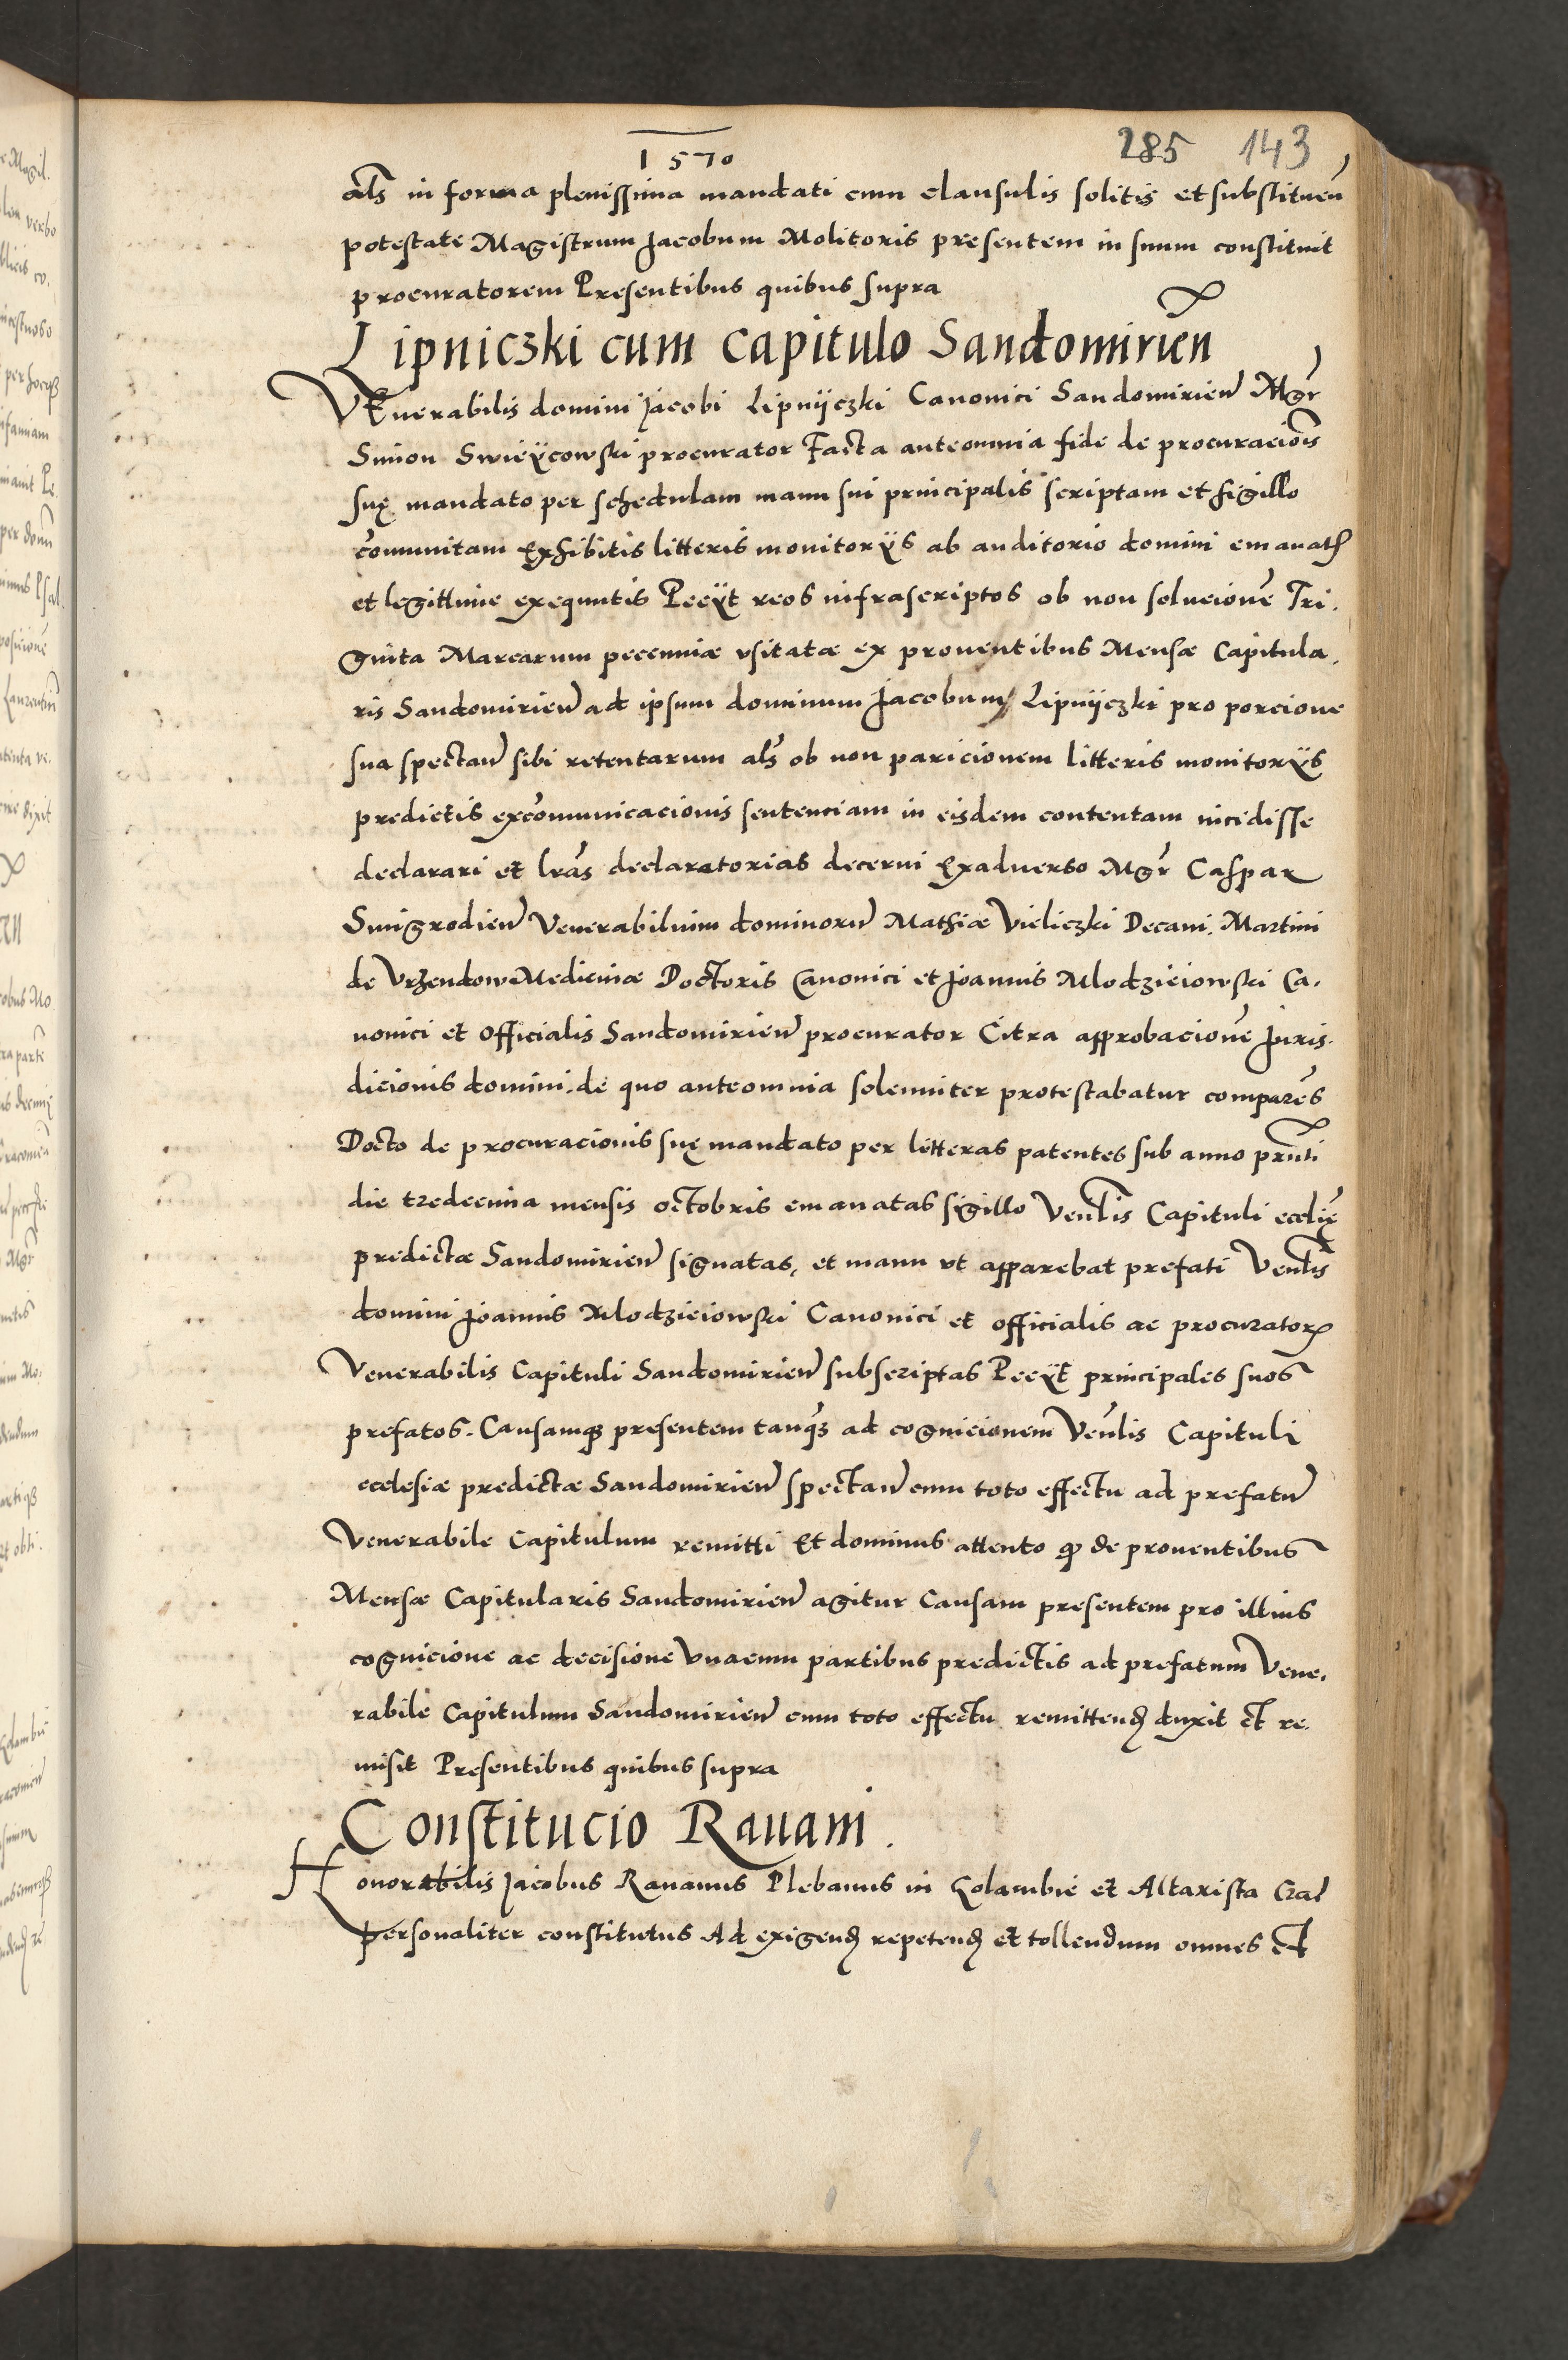 1570
285 143
als in forma plenissima mandati cum clausulis solitis et substituen
potestate Magistrum Jacobum Molitoris presentem in suum constituit
procuratorem Presentibus quibus supra
Lipniczki cum Capitulo Sandomirien
VEnerabilis domini Jacobi Lipnijczki Canonici Sandomirien Mgr
Simon procurator Facta anteomnia fide de procuracionis
suę mandato per schedulam manu sui principalis scriptam et sigillo
comunitam Exhibitis litteris monitorÿs ab auditorio domini emanat
et legittime exequutis Peeÿt reos infrascriptos ob non solucionē Tri.
ginta Marcarum pecuniæ vsitatæ ex prouentibus Mensæ Capitula.
ris Sandomirien ad ipsum dominum Jacobum Lipnijczki pro porcione
sua spectan sibi retentarum als ob non paricionem litteris monitorÿs
predictis excōmunicacionis sentenciam in eisdem contentam incidisse
declarari et lras declaratorias decerni Exaduerso Mgr Caspar
Smigrodien Venerabilium dominorū Mathiæ Vieliczki Decani. Martini
de Vrzendow Medicinæ Doctoris Canonici et Joannis Mlodzieiowski Ca.
nonici et Officialis Sandomirien procurator Citra approbacionē Juris.
dicionis domini. de quo anteomnia solenniter protestabatur comparēs
Docto de procuracionis suę mandato per litteras patentes sub anno prnti
die tredecima mensis octobris emanatas sigillo Venlis Capituli ecclię
predictæ Sandomirien signatas, et manu vt apparebat prefati Venlis
domini Joannis Mlodzieiowski Canonici et officialis ac procurator
Venerabilis Capituli Sandomirien subscriptas Peeÿt principales suos
prefatos. Causamq presentem tanqz ad cognicionem Venlis Capituli
ecclesiæ predictæ Sandomirien spectan cum toto effectu ad prefatū
Venerabile Capitulum remitti Et dominus attento qd de prouentibus
Mensæ Capitularis Sandomirien agitur Causam presentem pro illius
cognicione ac decisione Vnacum partibus predictis ad prefatum Vene.
rabile Capitulum Sandomirien cum toto effectu remittend duxit et re.
misit Presentibus quibus supra
Constitucio Rauani.
Honorabilis Jacobus Rauanus Plebanus in Golambie et Altarista
personaliter constitutus Ad exigend repetend et tollendum omnes et